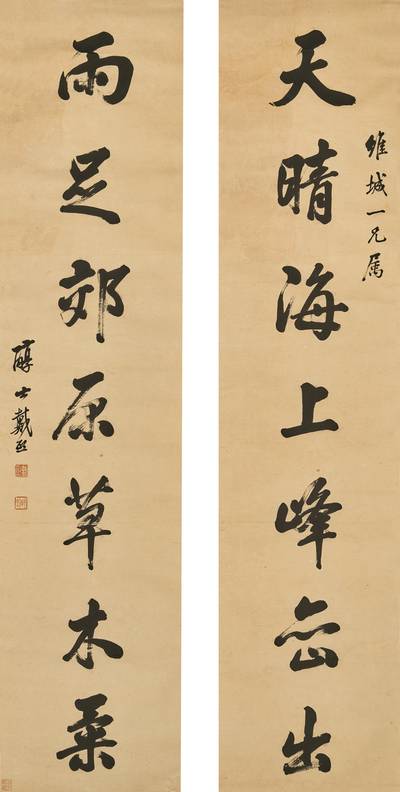 天晴海上峰峦出
維城一兄属
雨足郊原草木柔
醇士戴熙